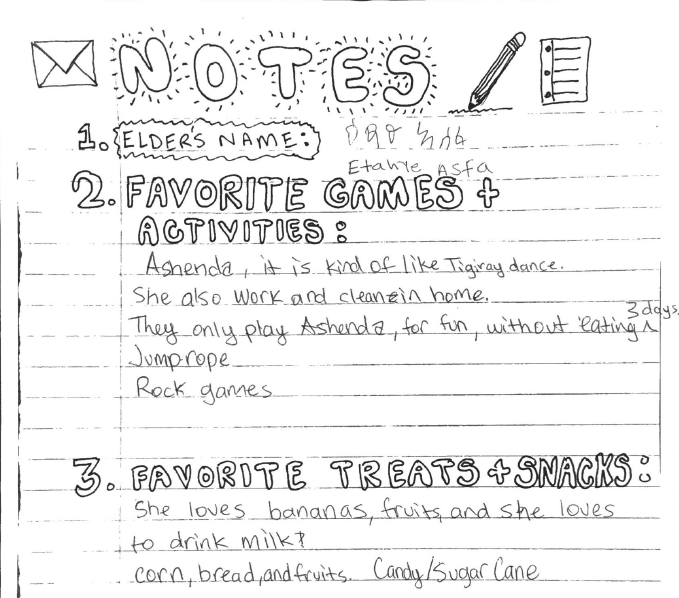 NOTES
1. ELDER'S NAME:
Etahye Asfa
2. FAVORITE GAMES +
ACTIVITIES:
Ashenda, it is kind of like Tigiray dance.
She also work and clean in home.
3 days.
They only play Ashenda, for fun, without eating ^
Jump rope
Rock games
3. FAVORITE TREATS + SNACKS:
She loves bananas, fruits, and she loves
to drink milk
corn, bread, and fruits. Candy/Sugar Cane